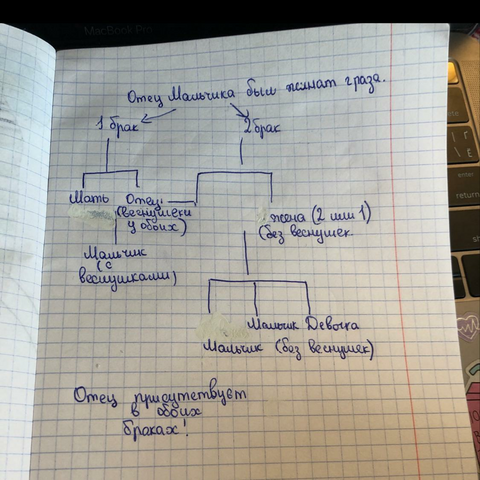 MacBook Pro
Отец Мальчика был женат 2 раза.
1 брак
2 брак
Мать Отец
(веснушки
у обоих)
жена (2 или 1)
(без веснушек
Мальчик
(с
веснушками)
Мальчик Девочка
Мальчик (без веснушек)
Отец присутствует
в обоих
браках!
return